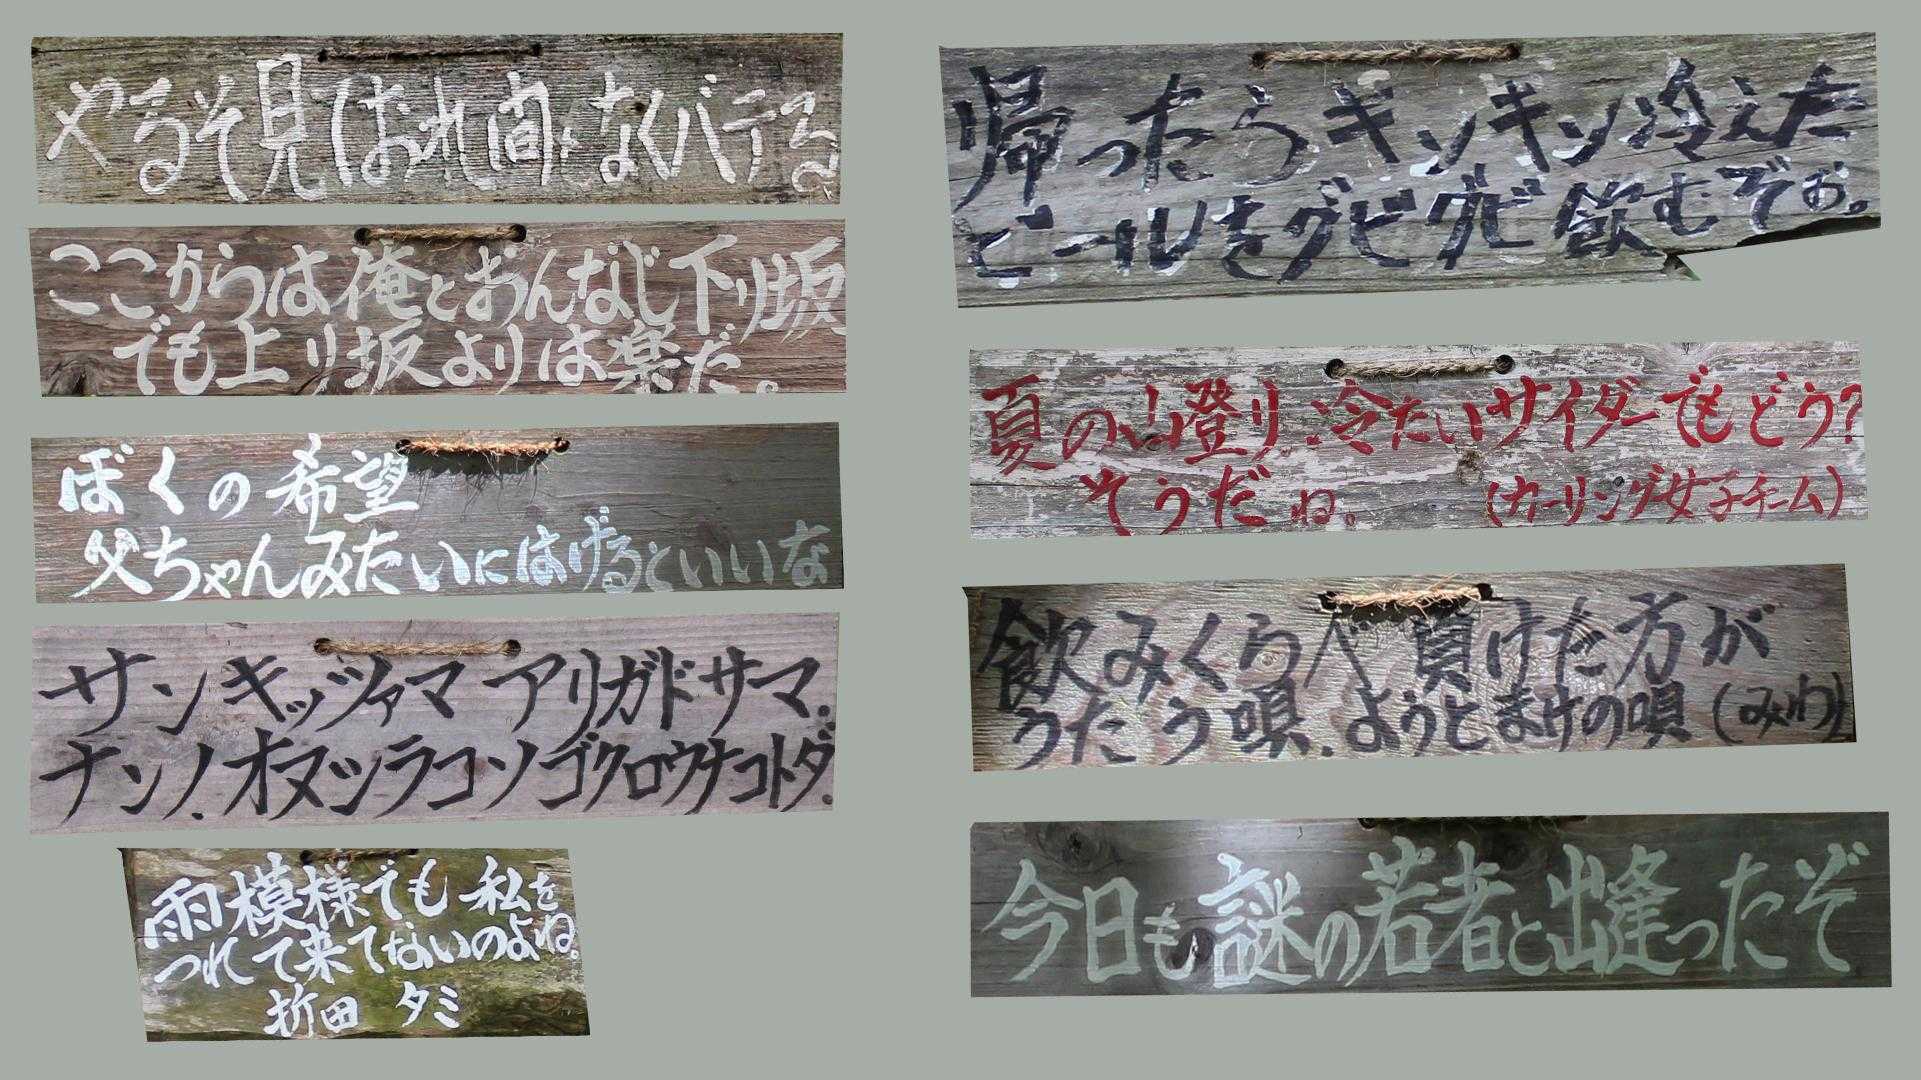 やるぞ見ておれ間もなくバテる
ここからは俺とおんなじ下り坂
でも上り坂よりは楽だ。
ぼくの希望
父ちゃんみたいにはげるといいな
サンキッツァマ アリガドサマ.
ナンノ.オヌッラコソゴクロウナコトダ.
雨模様でも私を
つれて来てないのよね。
折田 タミ
帰ったらギンギン冷えた
ビールをグビグビ飲むぞぉ。
夏の山登り.冷たいサイダーでもどう?
そうだね。 (カーリング女子チーム)
飲みくらべ 負けた方が
うたう唄.ようとまけの唄(みわ)
今日も謎の若者と出逢ったぞ